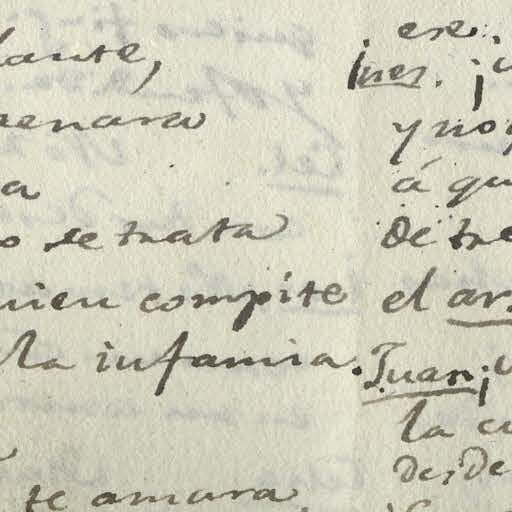 lante,
enara
a
o se trata
uien compite
la infamia.
te amara
ese.
Ines. ¡
y no
á qu
de tre
el ar
Juan ¡
la cu
desde